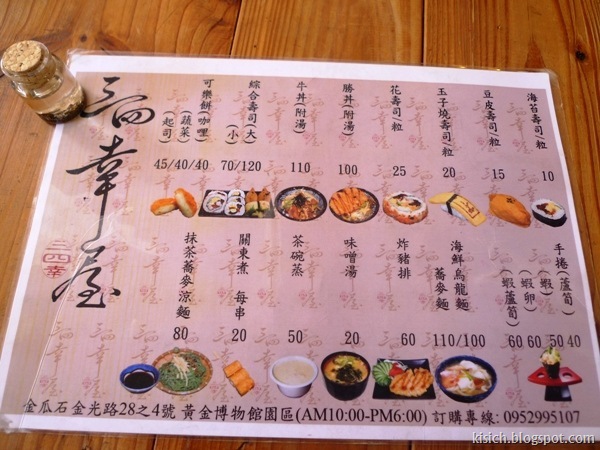 三四幸屋
三四幸
海苔壽司/粒 10
豆皮壽司/粒 15
玉子燒壽司/粒 20
花壽司/粒 25
勝丼(附湯) 100
牛丼(附湯) 110
綜合壽司(大)(小) 70/120
可樂餅(咖哩)(蔬菜)(起司) 45/40/40
手捲(蘆筍)(蝦)(蝦卵)(蝦蘆筍) 60 60 50 40
海鮮烏龍麵 蕎麥麵 110/100
炸豬排 60
味噌湯 20
茶碗蒸 50
關東煮 每串 20
抹茶蕎麥涼麵 80
金瓜石金光路28之4號 黃金博物館園區(AM10:00-PM6:00) 訂購專線: 0952995107
kisich.blogspot.com